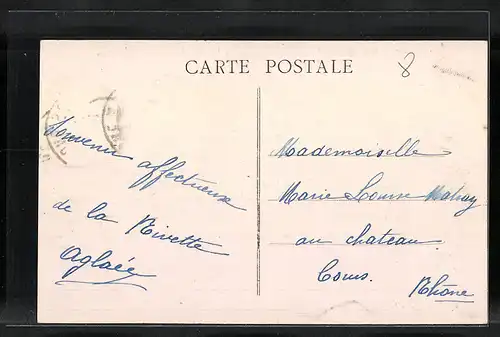 CARTE POSTALE
8
Souvenir
affectueux
de la Rivette
Aglaée
Mademoiselle
Marie Louise
au chateau
Cours.
Rhône